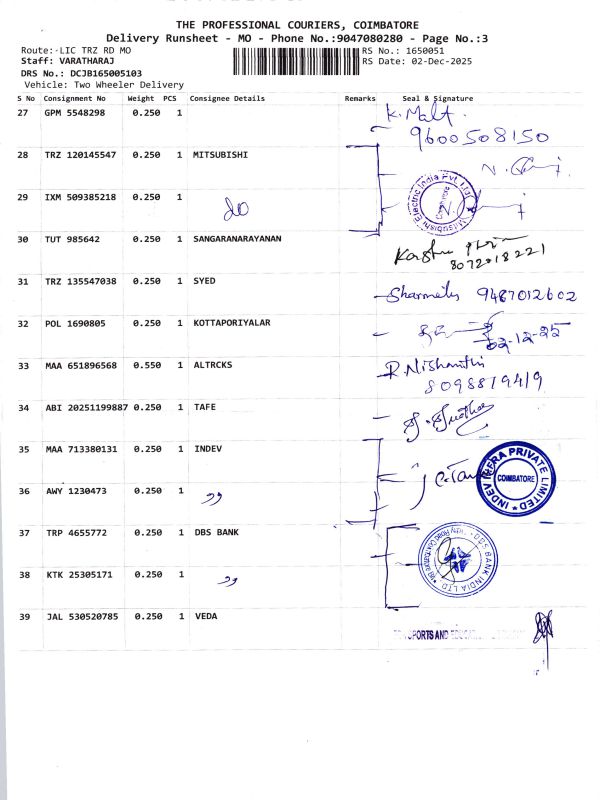 THE PROFESSIONAL COURIERS, COIMBATORE
Delivery Runsheet - MO - Phone No.:9047080280 - Page No.:3
Route:-LIC TRZ RD MO RS No.: 1650051
Staff: VARATHARAJ RS Date: 02-Dec-2025
DRS No.: DCJB165005103
Vehicle: Two Wheeler Delivery
S No Consignment No Weight PCS Consignee Details Remarks Seal & Signature
27 GPM 5548298 0.250 1
9600508150
28 TRZ 120145547 0.250 1 MITSUBISHI
29 IXM 509385218 0.250 1 do
Mitsubishi Electric India Pvt. Ltd. Coimbatore
30 TUT 985642 0.250 1 SANGARANARAYANAN
8072018221
31 TRZ 135547038 0.250 1 SYED
9487012602
32 POL 1690805 0.250 1 KOTTAPORIYALAR
02-12-25
33 MAA 651896568 0.550 1 ALTRCKS
R. Nishanthi
8098879419
34 ABI 20251199887 0.250 1 TAFE
35 MAA 713380131 0.250 1 INDEV
INDEV INFRA PRIVATE LIMITED COIMBATORE
36 AWY 1230473 0.250 1 ,,
37 TRP 4655772 0.250 1 DBS BANK
DBS BANK INDIA LTD.
38 KTK 25305171 0.250 1 ,,
39 JAL 530520785 0.250 1 VEDA
SPORTS AND